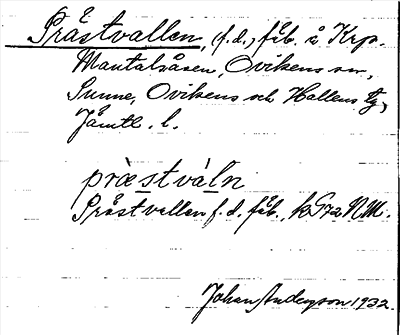 Prästvallen, (f.d.) fäb. å Krp.
Mantalsåsen, Ovikens sn,
Sunne, Ovikens och Hallens tg,
Jämtl. l.
præstváln
Prästvallen f.d. fäb. k 572 NM.
Johan Anderson 1932.